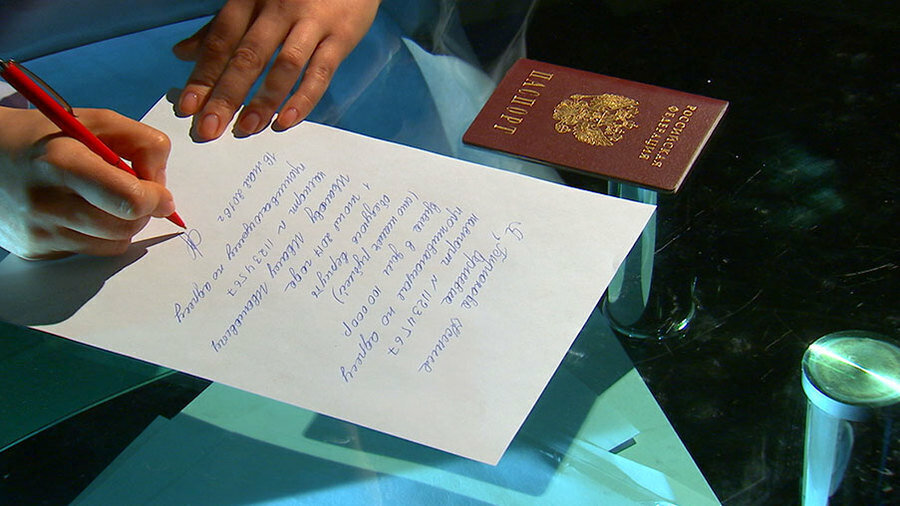 ПАСПОРТ
РОССИЙСКАЯ
ФЕДЕРАЦИЯ
Я, Ксения
паспорт N 11234567
проживающая по адресу
взяла в долг 100 000р
(сто тысяч рублей)
Обязуюсь вернуть
1 июня 2017 года
Иванову Ивану Ивановичу
паспорт N 11234567
проживающему по адресу
16 мая 2016г